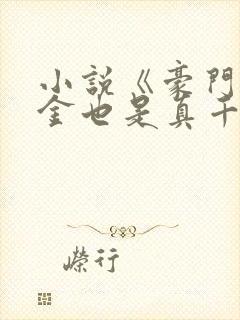 小說《豪門
金也是真千
嶸行